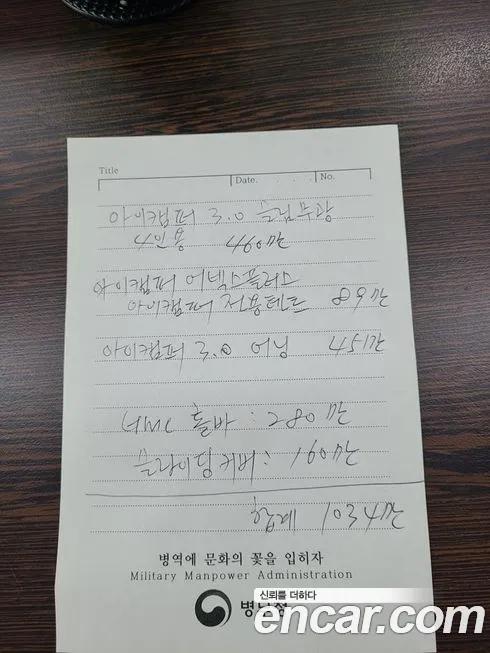 Title
Date. . . .
No.
아이캠퍼 3.0 슬림무광
4인용 460만
아이캠퍼 어넥스플러스
아이캠퍼 전용텐트 89만
아이캠퍼 3.0 어닝 45만
HMC 롤바 : 280만
슬라이딩커버 : 160만
합계 1034만
병역에 문화의 꽃을 입히자
Military Manpower Administration
신뢰를 더하다
encar.com